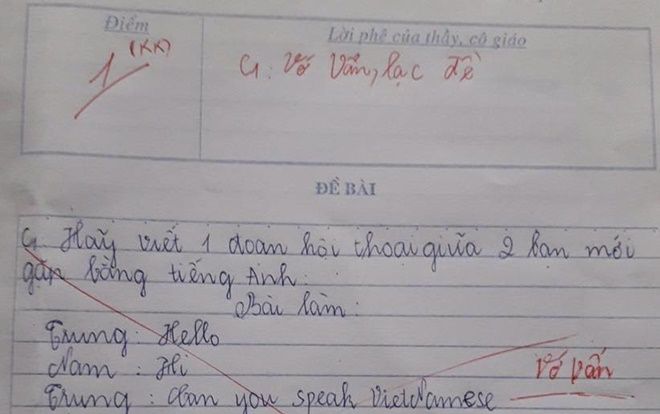 Điểm
Lời phê của thầy, cô giáo
1 (KK)
G: Vớ Vẩn, lạc đề
ĐỀ BÀI
G Hãy viết 1 đoạn hội thoại giữa 2 bạn mới
gặp bằng tiếng Anh:
Bài làm:
Trung: Hello
Nam: Hi
Vớ vẩn
Trung: Can you speak Vietnamese